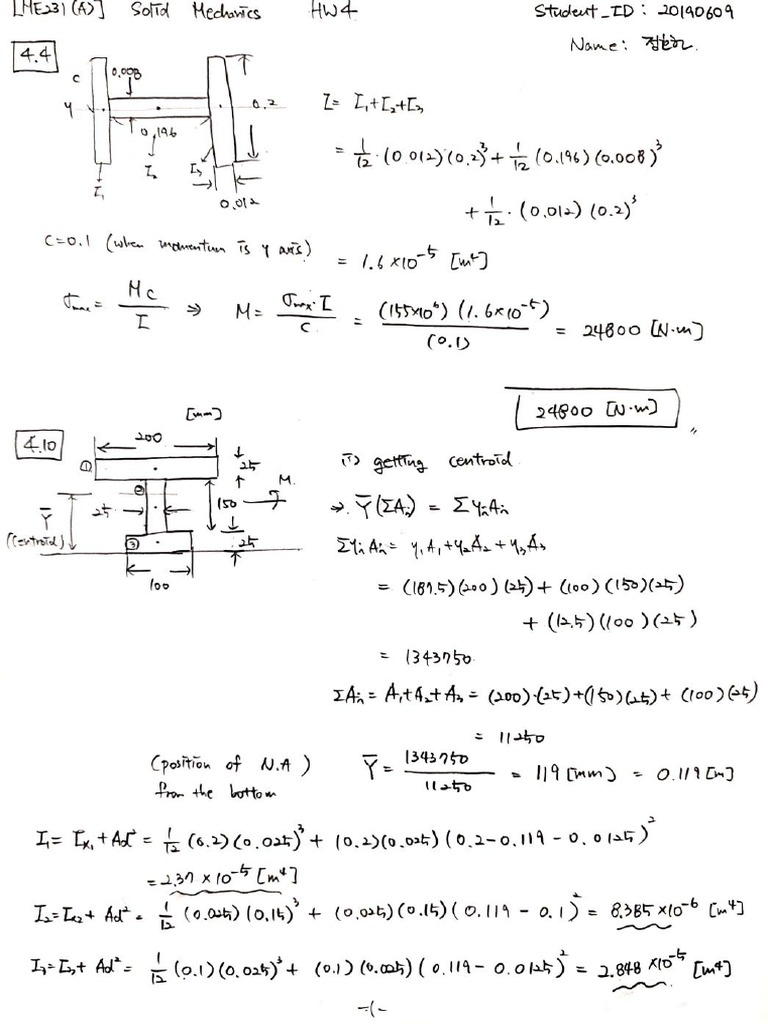 [ME231(A)] Solid Mechanics HW4 Student_ID : 20190609
Name :
4.4
C 0.008
y 0.2
0.196
I₁ I₂ I₃
0.012
I = I₁+I₂+I₃
= 1/12 · (0.012)(0.2)³ + 1/12 (0.196)(0.008)³
+ 1/12 · (0.012)(0.2)³
C=0.1 (when momentum is y axis) = 1.6×10⁻⁵ [m⁴]
σmax = Mc/I ⇒ M = σmax·I/C = (155×10⁶)(1.6×10⁻⁵)/(0.1) = 24800 [N·m]
24800 [N·m]
4.10
[mm]
200
① 25
② M.
Ȳ 25 150
(centroid) ③ 25
100
i) getting centroid
→. Ȳ(ΣAᵢ) = ΣyᵢAᵢ
ΣyᵢAᵢ = y₁A₁+y₂A₂+y₃A₃
= (187.5)(200)(25) + (100)(150)(25)
+ (12.5)(100)(25)
= 1343750
ΣAᵢ = A₁+A₂+A₃ = (200)·(25)+(150)(25)+(100)(25)
= 11250
(position of N.A) Ȳ = 1343750/11250 = 119 [mm] = 0.119 [m]
from the bottom
I₁ = Iₓ₁ + Ad² = 1/12 (0.2)(0.025)³ + (0.2)(0.025)(0.2-0.119-0.0125)²
= 2.37 ×10⁻⁵ [m⁴]
I₂ = Iₓ₂ + Ad² = 1/12 (0.025)(0.15)³ + (0.025)(0.15)(0.119 - 0.1)² = 8.385 ×10⁻⁶ [m⁴]
I₃ = I₃ + Ad² = 1/12 (0.1)(0.025)³ + (0.1)(0.025)(0.119 - 0.0125)² = 2.848 ×10⁻⁵ [m⁴]
-1-